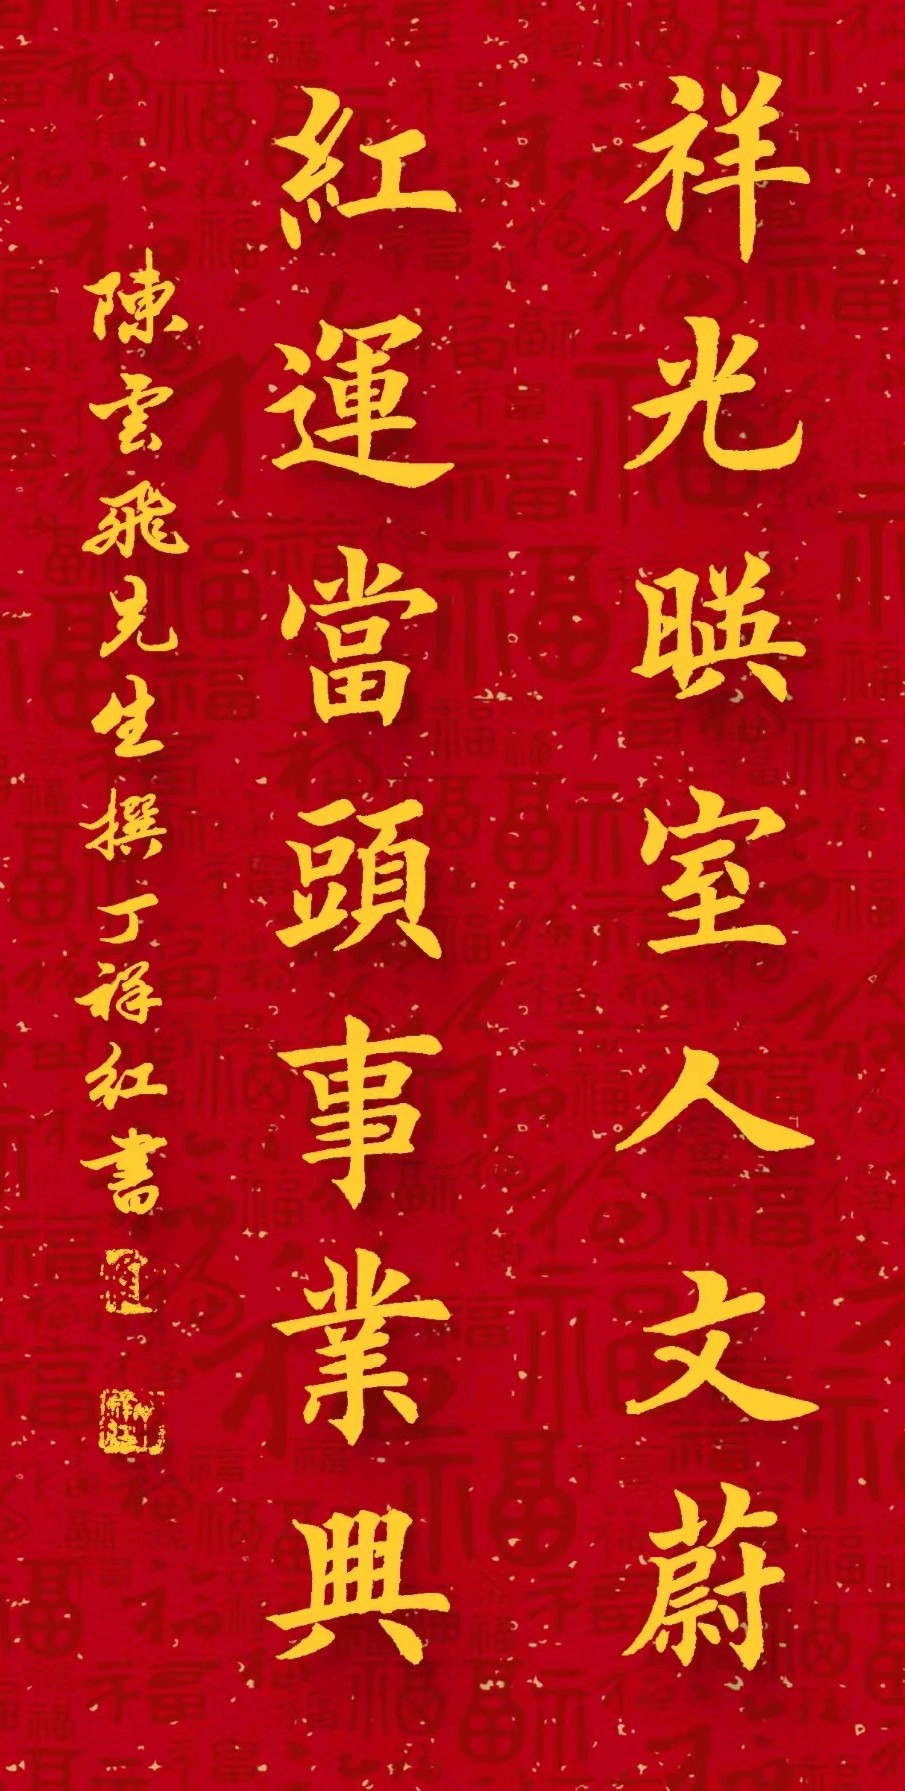 祥光暎室人文蔚
紅運當頭事業興
陳雲飛先生撰丁祥红書